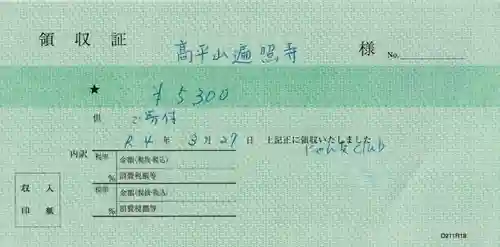 領収証 高平山遍照寺 様 No.
★ ¥5,300
但 ご寄付
R4年3月29日 上記正に領収いたしました
にゃん友club
内訳
税率 金額(税抜・税込)
% 消費税額等
税率 金額(税抜・税込)
% 消費税額等
収入
印紙
D211R18